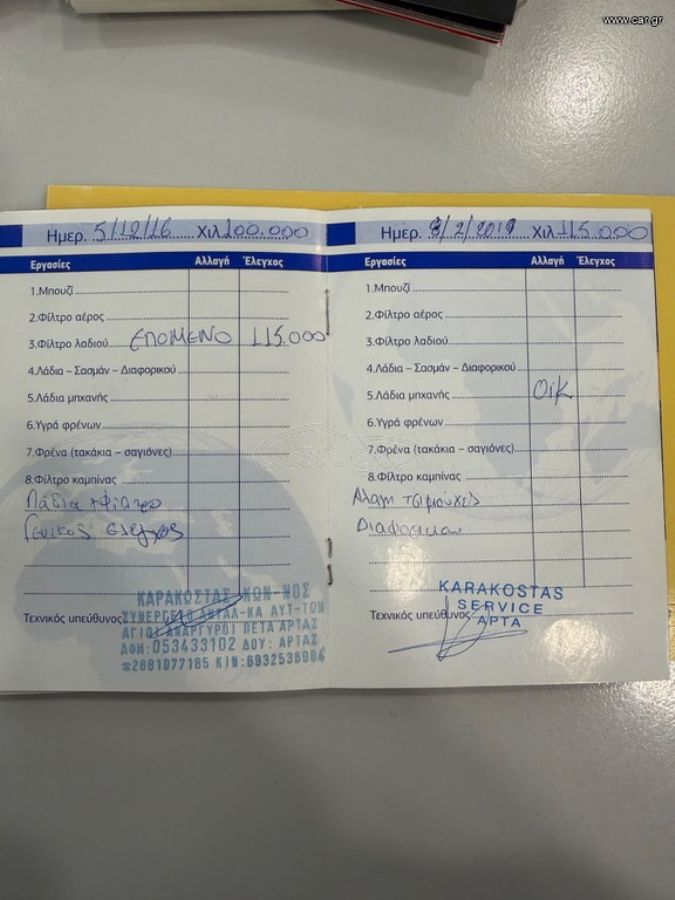 www.car.gr
Ημερ. 5/12/16 Χιλ. 100.000
Εργασίες Αλλαγή Έλεγχος
1.Μπουζί
2.Φίλτρο αέρος
3.Φίλτρο λαδιού ΕΠΟΜΕΝΟ 115.000
4.Λάδια – Σασμάν – Διαφορικού
5.Λάδια μηχανής
6.Υγρά φρένων
7.Φρένα (τακάκια – σαγιόνες)
8.Φίλτρο καμπίνας
Λάδια + Φίλτρο
Γενικος ελεγχος
Τεχνικός υπεύθυνος
ΚΑΡΑΚΩΣΤΑΣ ΚΩΝ-ΝΟΣ
ΣΥΝΕΡΓΕΙΟ ΑΝΤΑΛ-ΚΑ ΑΥΤ-ΤΩΝ
ΑΓΙΟΙ ΑΝΑΡΓΥΡΟΙ ΠΕΤΑ ΑΡΤΑΣ
ΑΦΜ: 053433102 ΔΟΥ: ΑΡΤΑΣ
☎2681077185 ΚΙΝ:
Ημερ. /2/ Χιλ. 115.000
Εργασίες Αλλαγή Έλεγχος
1.Μπουζί
2.Φίλτρο αέρος
3.Φίλτρο λαδιού
4.Λάδια – Σασμάν – Διαφορικού
5.Λάδια μηχανής
6.Υγρά φρένων
7.Φρένα (τακάκια – σαγιόνες)
8.Φίλτρο καμπίνας
Αλαγη τσιμουχες
Διαφορικου
Τεχνικός υπεύθυνος
KARAKOSTAS
SERVICE
ΑΡΤΑ